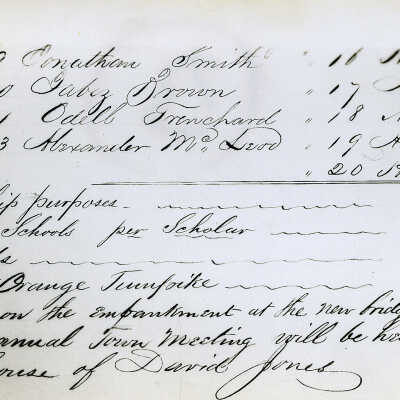 Jonathan Smith " 16
Jabez Brown " 17
1 Odell Trenchard " 18
3 Alexander Mc Leod " 19
" 20
purposes
Schools per Scholar
Orange Turnpike
on the Embankment at the new bridg
annual Town Meeting will be he
ouse of David Jones